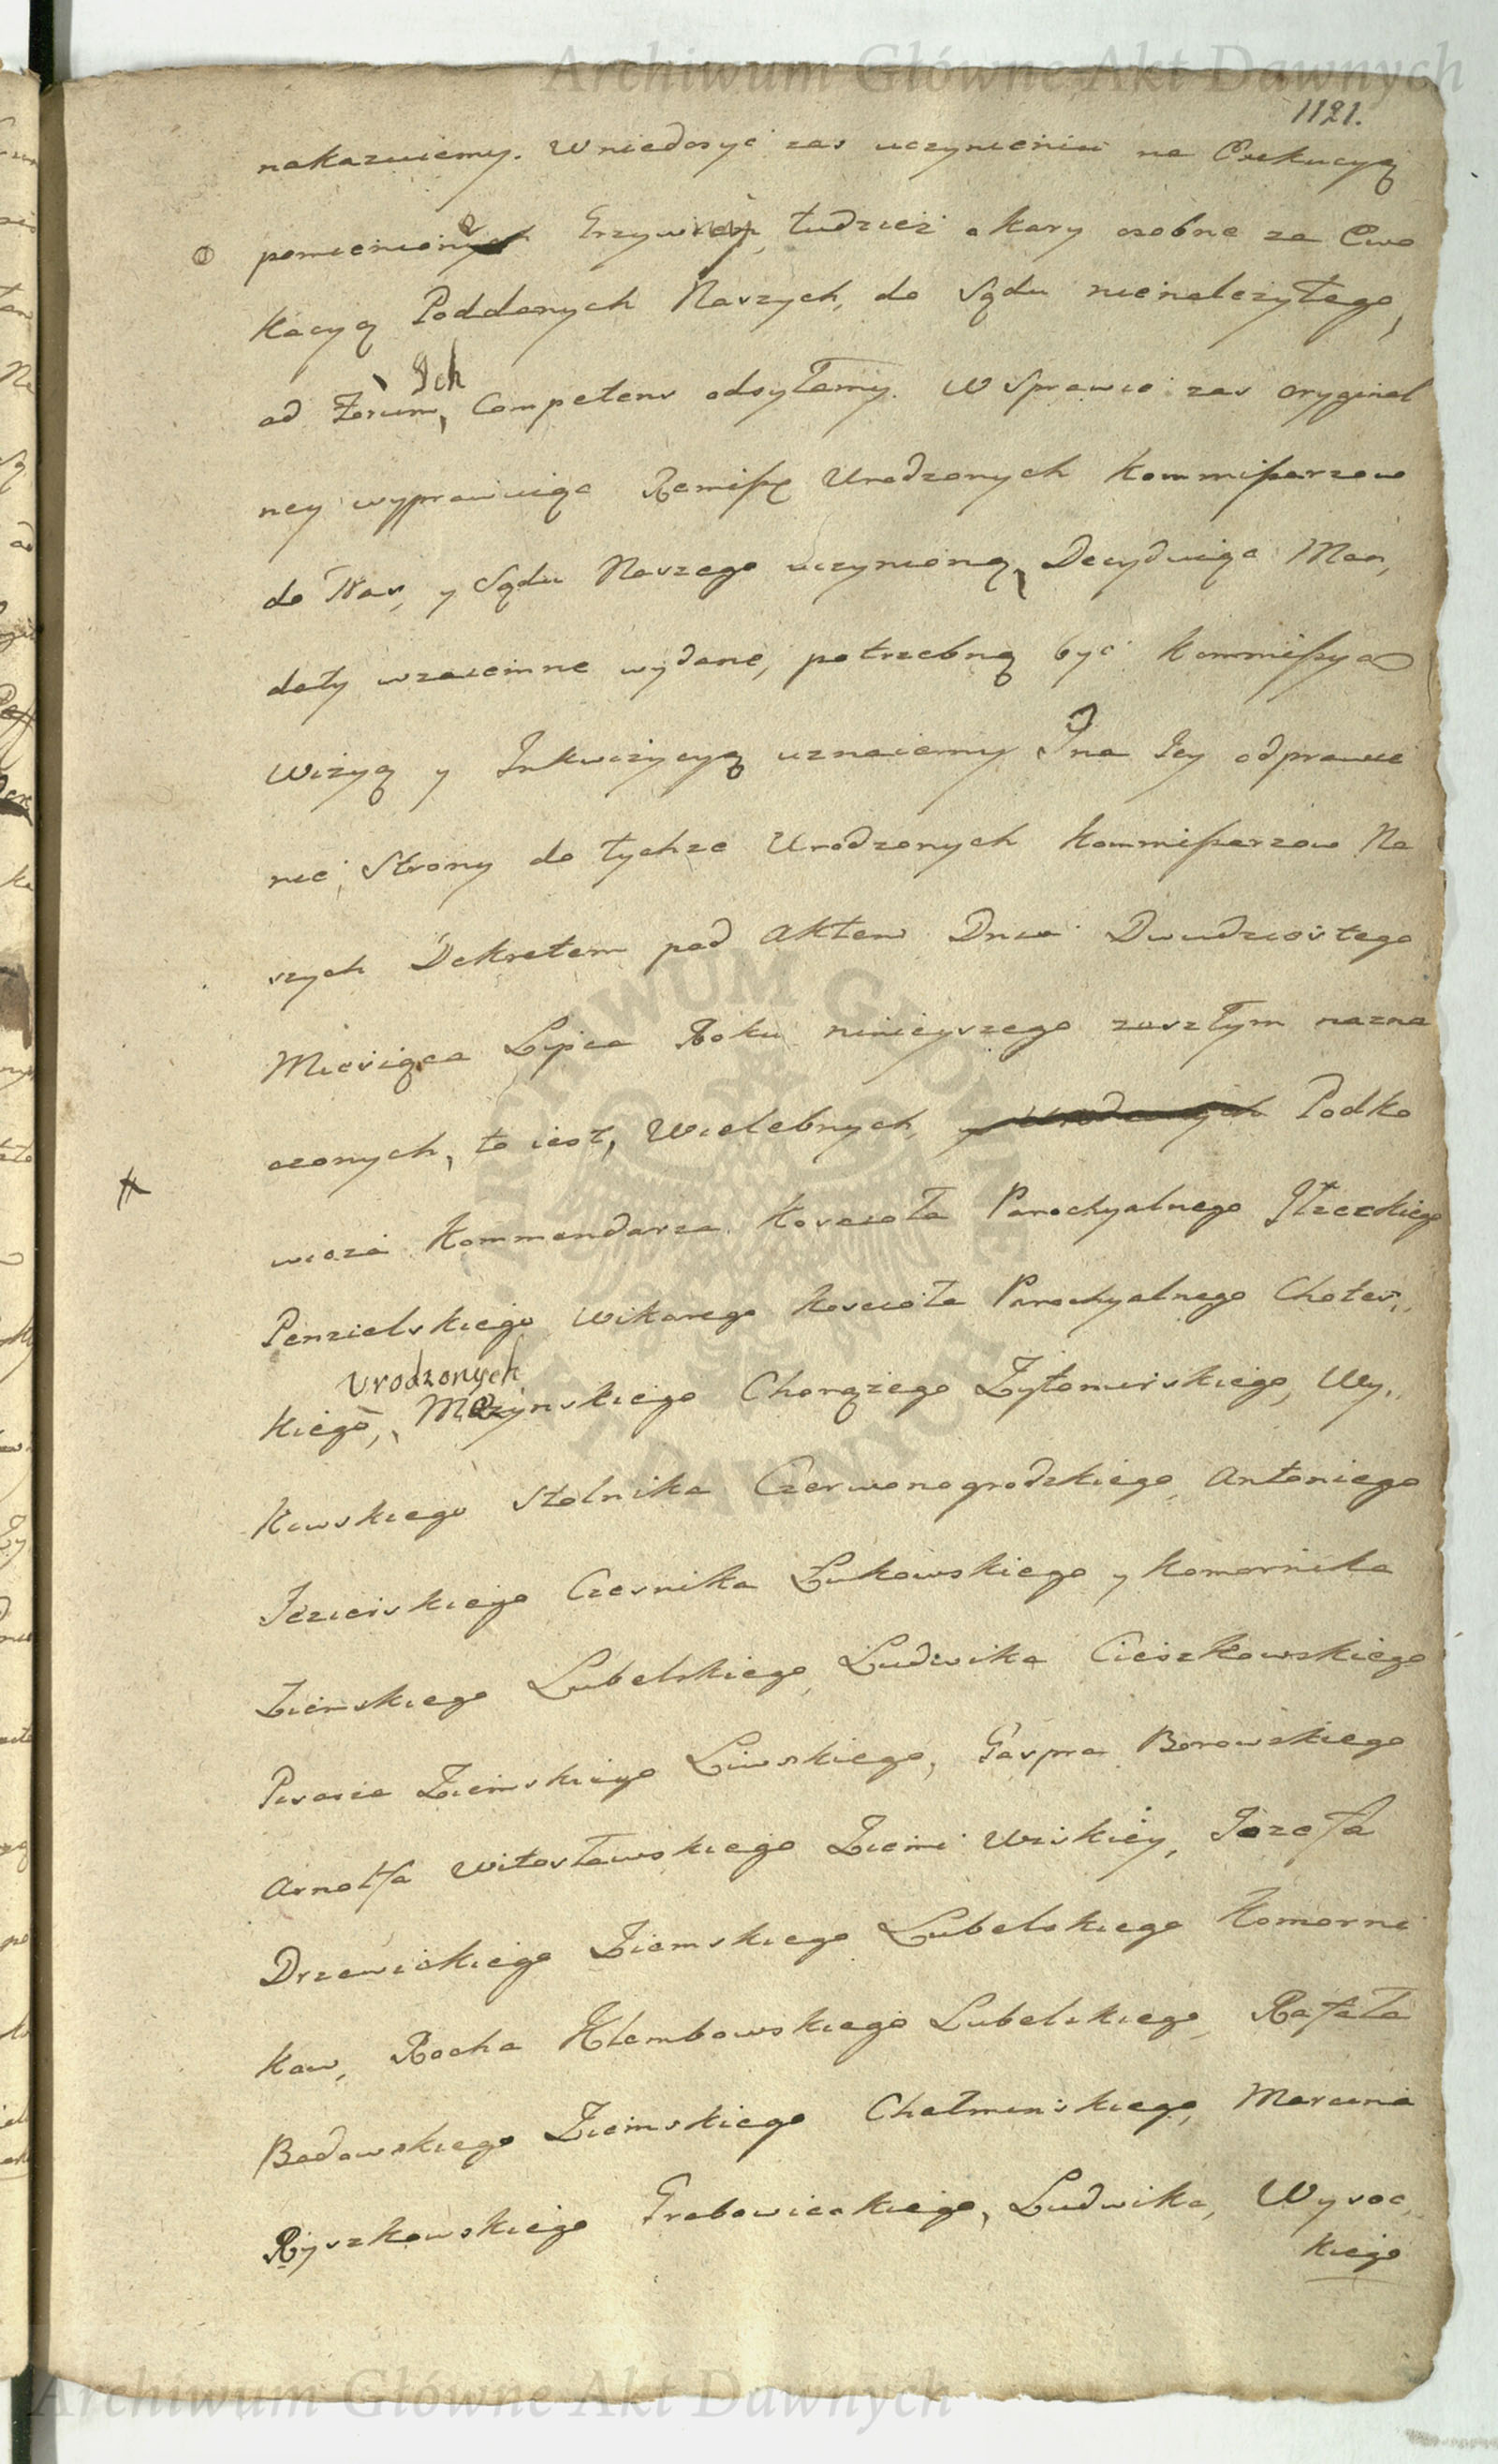 Archiwum Główne Akt Dawnych
1121.
nakazuiemy. W niedosyć zas uczynieniu na Exekucyą
pomienioney Grzywien, tudzież o kary osobne za Ewo
kacyą Poddanych Naszych, do Sądu nienależytego,
Ich
ad Forum, Competens odsyłamy. W Sprawie zas orygina l
ney wyprawuiąc Remissę Urodzonych Kommissarzow
do Nas, y Sądu Naszego uczynioną, Decyduiąc Man,
daty wzaiemne wydane, potrzebną być Kommissya
Wizyą y Inkwizycyą uznaiemy I na Iey odprawie
nie, Strony do tychze Urodzonych Kommissarzow Na
szych Dekretem pod Aktem Dnia Dwudziestego
Miesiąca Lipca Roku ninieyszego zaszłym nazna
czonych, to iest, Wielebnych, y Urodzonych Podko
wicza Kommendarza Koscioła Parochyalnego Iłzeckiego
Penzielskiego Wikarego Koscioła Parochyalnego Chotec,,
Urodzonych
kiego, Mczynskiego Chorążego Żytomirskiego, Wy,,
kowskiego Stolnika Czerwonogrodzkiego, Antoniego
Iezierskiego Czesnika Łukowskiego y Komornika
Ziemskiego Lubelskiego, Ludwika Cieszkowskiego
Pisarza Ziemskiego Liwskiego, Gaspra Borowskiego
Arnolfa Witosławskiego Ziemi Wiskiey, Jozefa
Drzewickiego Ziemskiego Lubelskiego Komorni
kow, Rocha Klembowskiego Lubelskiego, Rafała
Badowskiego Ziemskiego Chełminskiego, Marcina
Ryszkowskiego Grabowieckiego, Ludwika, Wysoc,
kiego
ARCHIWUM GŁÓWNE AKT DAWNYCH
Archiwum Główne Akt Dawnych